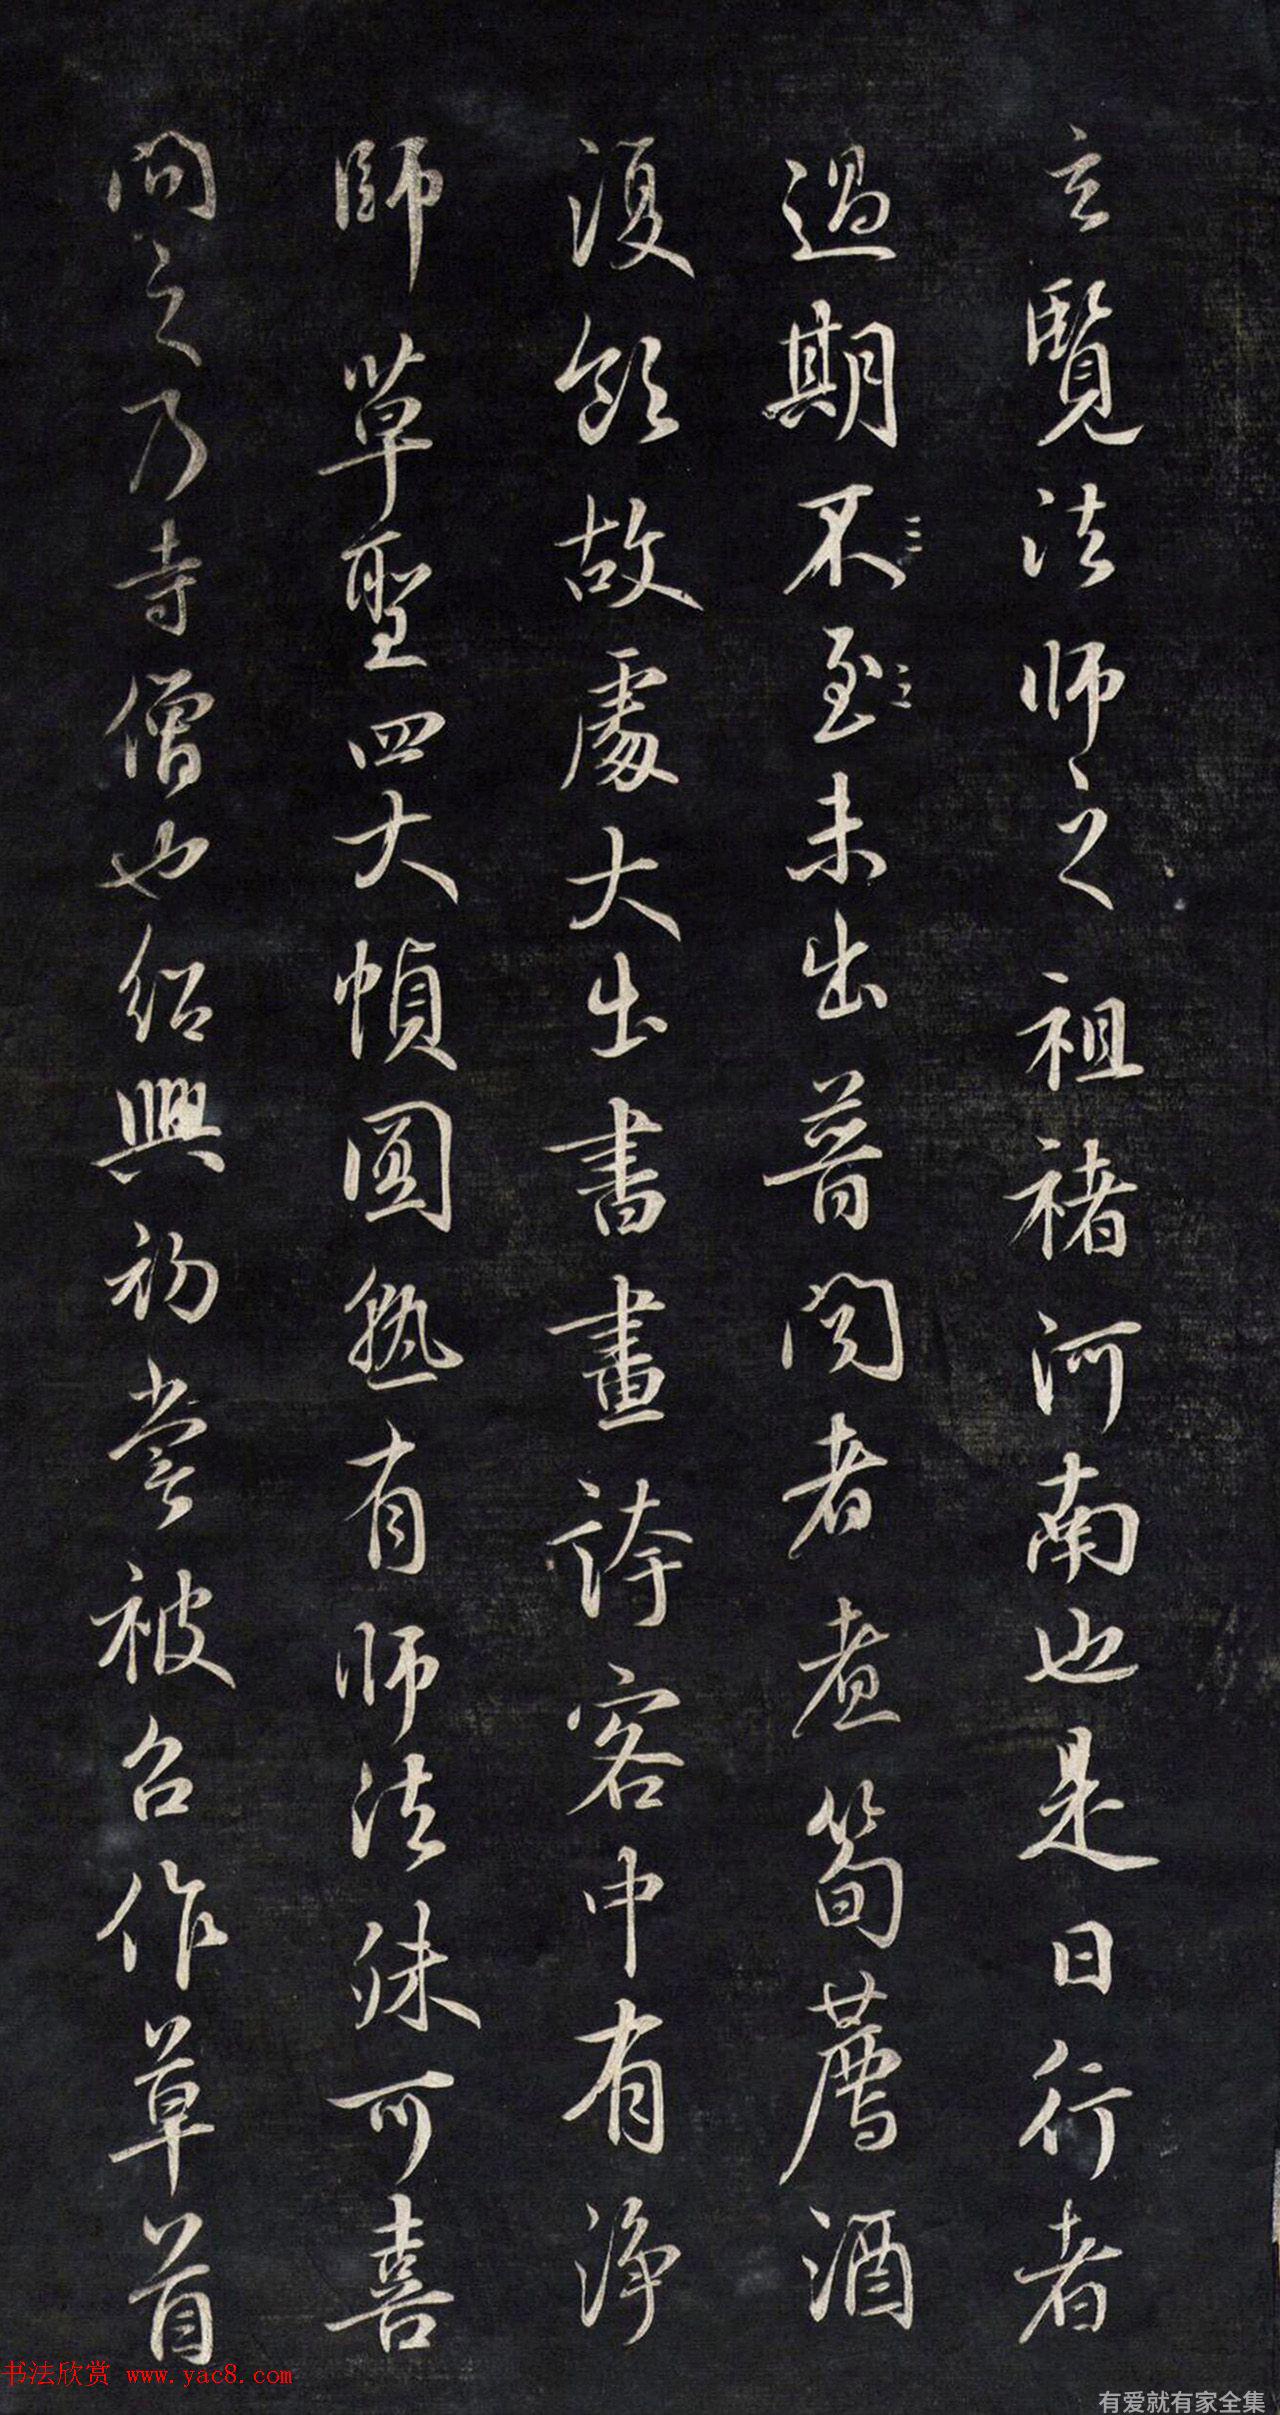 玄覽法師之祖褚河南也是日行者
過期不至未出普者煮筍薦酒
復飲故處大出書畫誇客中有淨
師草聖四大幀圓熟有師法殊可喜
問之乃寺僧也紹興初嘗被召作草首
书法欣赏 www.yac8.com
有爱就有家全集